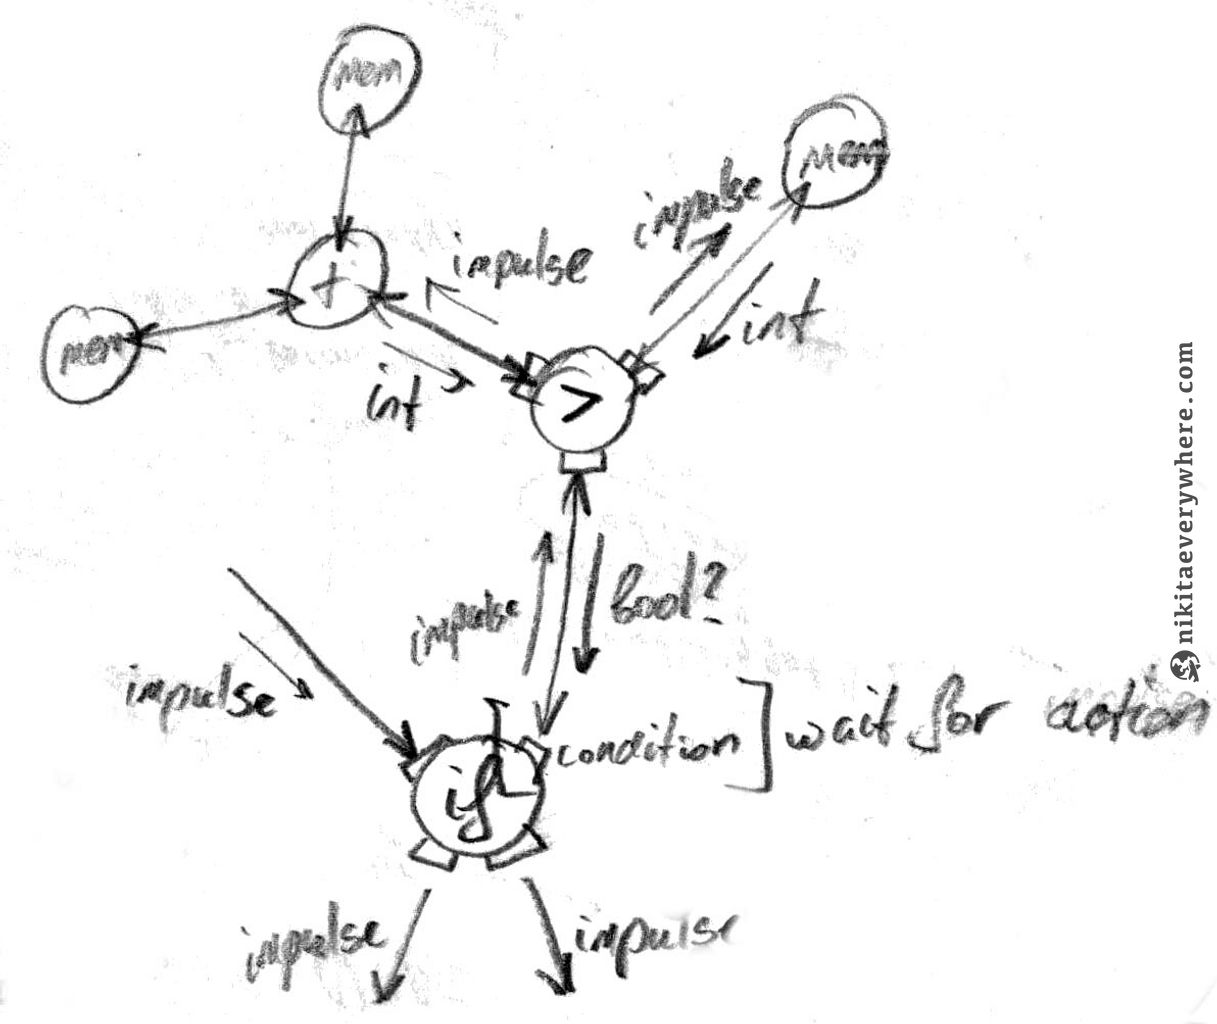 mem
mem
impulse
+
impulse
mem
int
int
>
impulse
bool?
impulse
condition ] wait for action
if
impulse
impulse
nikitaeverywhere.com